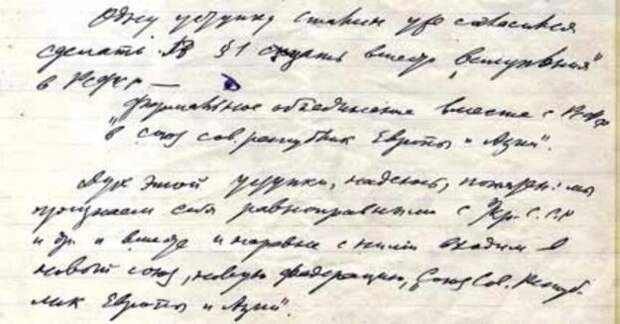 Одну уступку Сталин уже согласился
сделать. В § 1 сказать вместо „вступления"
в РСФСР —
формальное объединение вместе с РСФСР
"в союз сов. республик Европы и Азии".
Дух этой уступки, надеюсь, понятен: мы
признаем себя равноправными с Укр. С.С.Р
и др. и вместе и наравне с ними входим в
новый союз, новую федерацию, „Союз Сов. Респуб-
лик Европы и Азии".